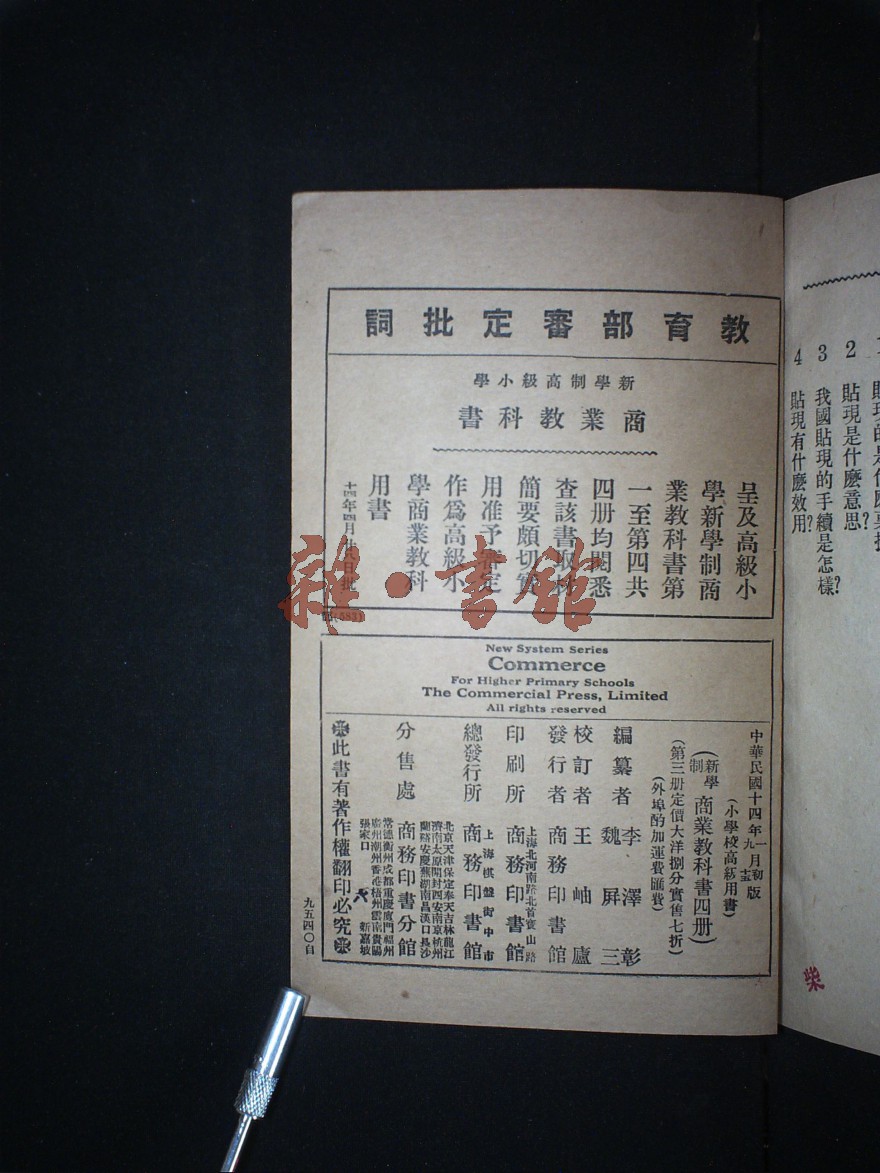 教育部審定批詞
新學制高級小學
商業教科書
呈及高級小
學新學制商
業教科書第
一至第四共
四册均閱悉
查該書取材
簡要頗切實
用准予審定
作爲高級小
學商業教科
用書
雜·書館
New System Series
Commerce
For Higher Primary Schools
The Commercial Press, Limited
All rights reserved
中華民國十四年
一月初
九月
版
(小學校高級用書)
(新學制)商業教科書四册)
(第三册定價大洋捌分實售七折)
(外埠酌加運費匯費)
編纂者
李澤彰
魏屏三
校訂者
王岫廬
發行者
商務印書館
印刷所
上海北河南路北首寶山路
商務印書館
總發行所
上海棋盤街中市
商務印書館
分售處
商務印書分館
北京天津保定奉天吉林龍江
濟南太原開封西安南京杭州
蘭谿安慶蕪湖南昌漢口長沙
常德衡州成都重慶廈門福州
廣州潮州香港梧州雲南貴陽
張家口 新嘉坡
此書有著作權翻印必究
九五四〇自
2 貼現是什麽意思?
3 我國貼現的手續是怎樣?
4 貼現有什麽效用?
柴